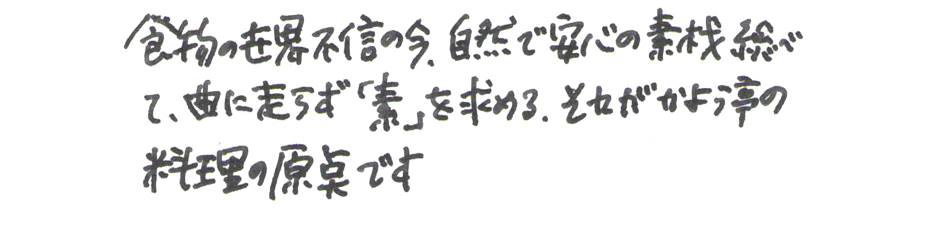 食物の世界不信の今、自然で安心の素材総べ
て、曲に走らず「素」を求める、それがかよう亭の
料理の原点です